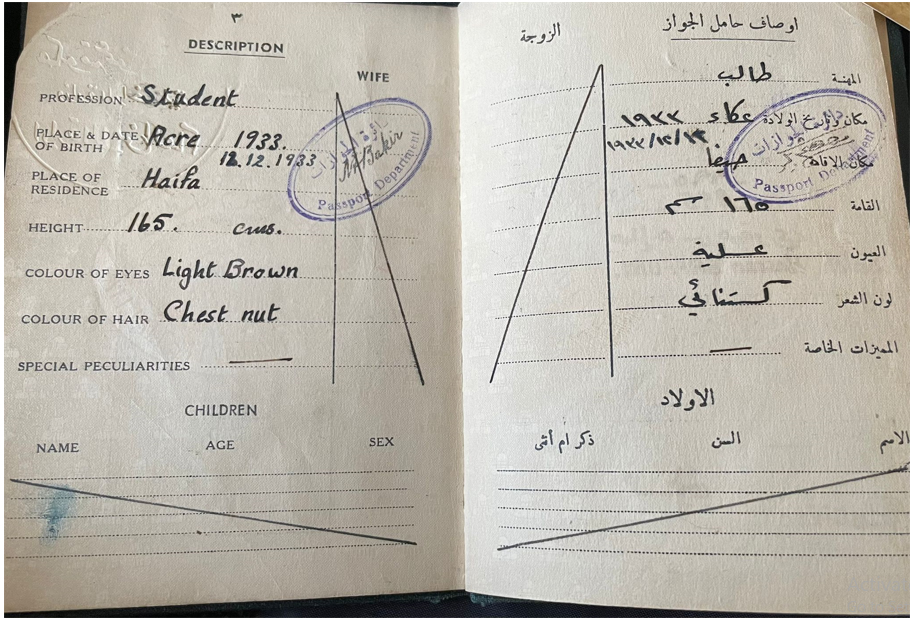 ٣
DESCRIPTION
WIFE
PROFESSION Student
PLACE & DATE OF BIRTH Acre 1933.
12.12.1933
PLACE OF RESIDENCE Haifa
HEIGHT 165. cms.
COLOUR OF EYES Light Brown
COLOUR OF HAIR Chest nut
SPECIAL PECULIARITIES —
Passport Department
CHILDREN
NAME AGE SEX
اوصاف حامل الجواز
الزوجة
المهنة طالب
مكان وتاريخ الولادة عكاء ١٩٣٣
١٩٣٣/١٢/١٢
مكان الاقامة حيفا
Passport Department
القامة ١٦٥ سم
العيون عسلية
لون الشعر كستنائي
المميزات الخاصة —
الاولاد
الاسم السن ذكر ام أنثى